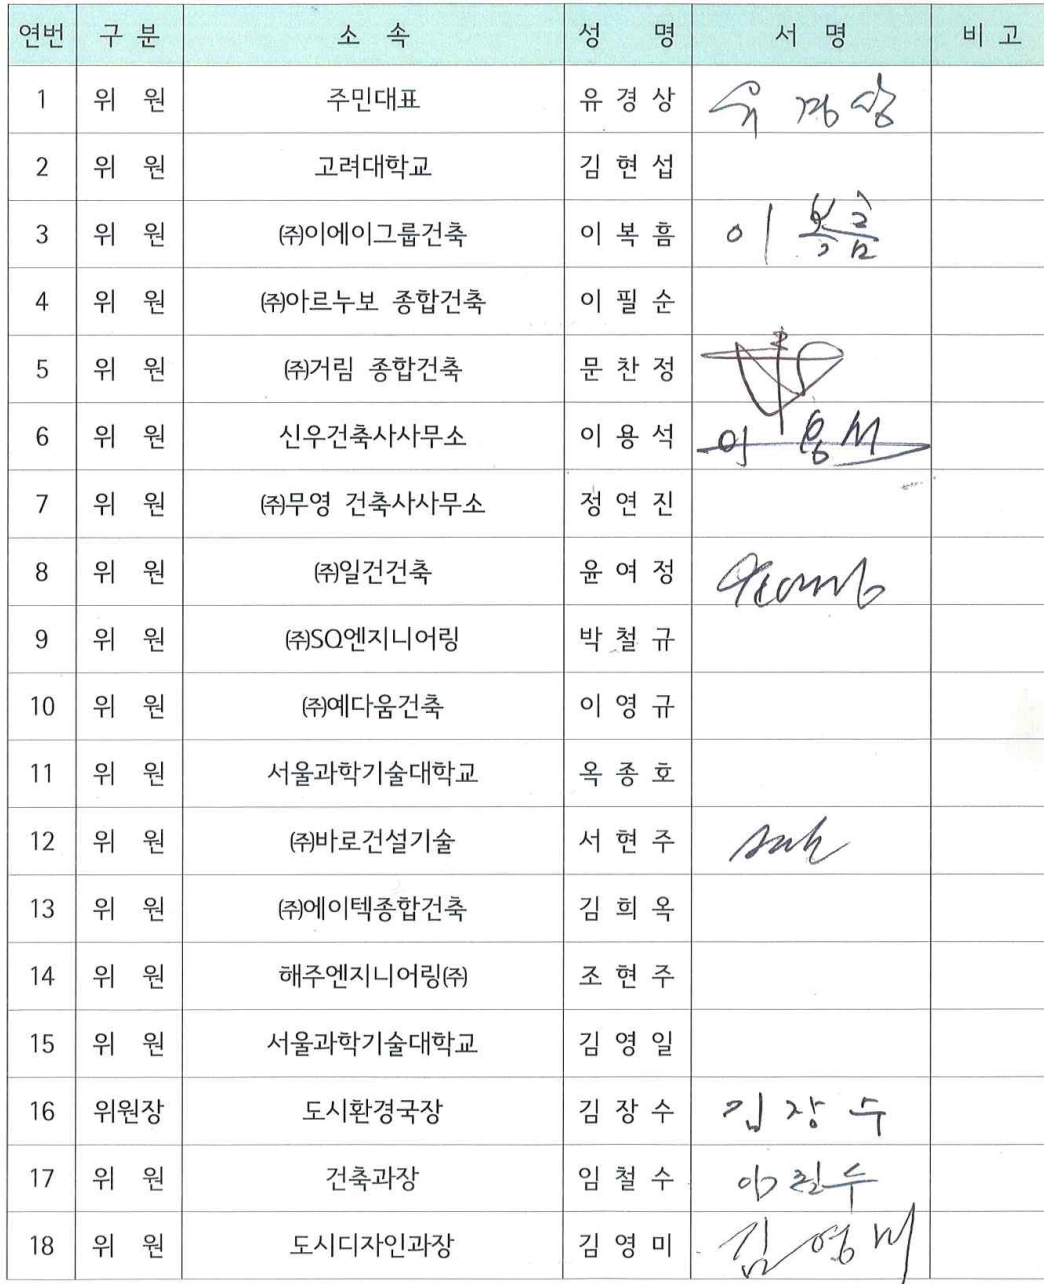 연번 구 분 소 속 성 명 서 명 비 고
1 위 원 주민대표 유 경 상 유 경 상
2 위 원 고려대학교 김 현 섭
3 위 원 ㈜이에이그룹건축 이 복 흠 이 복 흠
4 위 원 ㈜아르누보 종합건축 이 필 순
5 위 원 ㈜거림 종합건축 문 찬 정
6 위 원 신우건축사사무소 이 용 석 이 용 석
7 위 원 ㈜무영 건축사사무소 정 연 진
8 위 원 ㈜일건건축 윤 여 정
9 위 원 ㈜SQ엔지니어링 박 철 규
10 위 원 ㈜예다움건축 이 영 규
11 위 원 서울과학기술대학교 옥 종 호
12 위 원 ㈜바로건설기술 서 현 주
13 위 원 ㈜에이텍종합건축 김 희 옥
14 위 원 해주엔지니어링㈜ 조 현 주
15 위 원 서울과학기술대학교 김 영 일
16 위원장 도시환경국장 김 장 수 김 장 수
17 위 원 건축과장 임 철 수 임 철 수
18 위 원 도시디자인과장 김 영 미 김 영 미